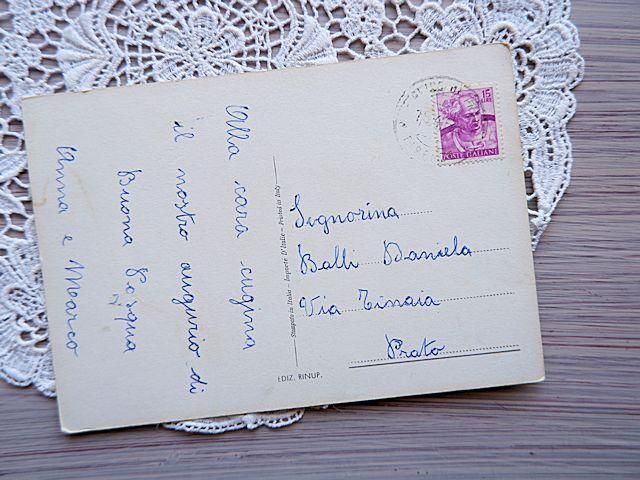 Alla cara cugina
il nostro augurio di
Buona Pasqua
Anna e Marco
Stampato in Italia - Imprimé D'Italie - Printed in Italy
EDIZ. RINUP.
15
LIRE
POSTE ITALIANE
Signorina
Balli Daniela
Via Tinaia
Prato